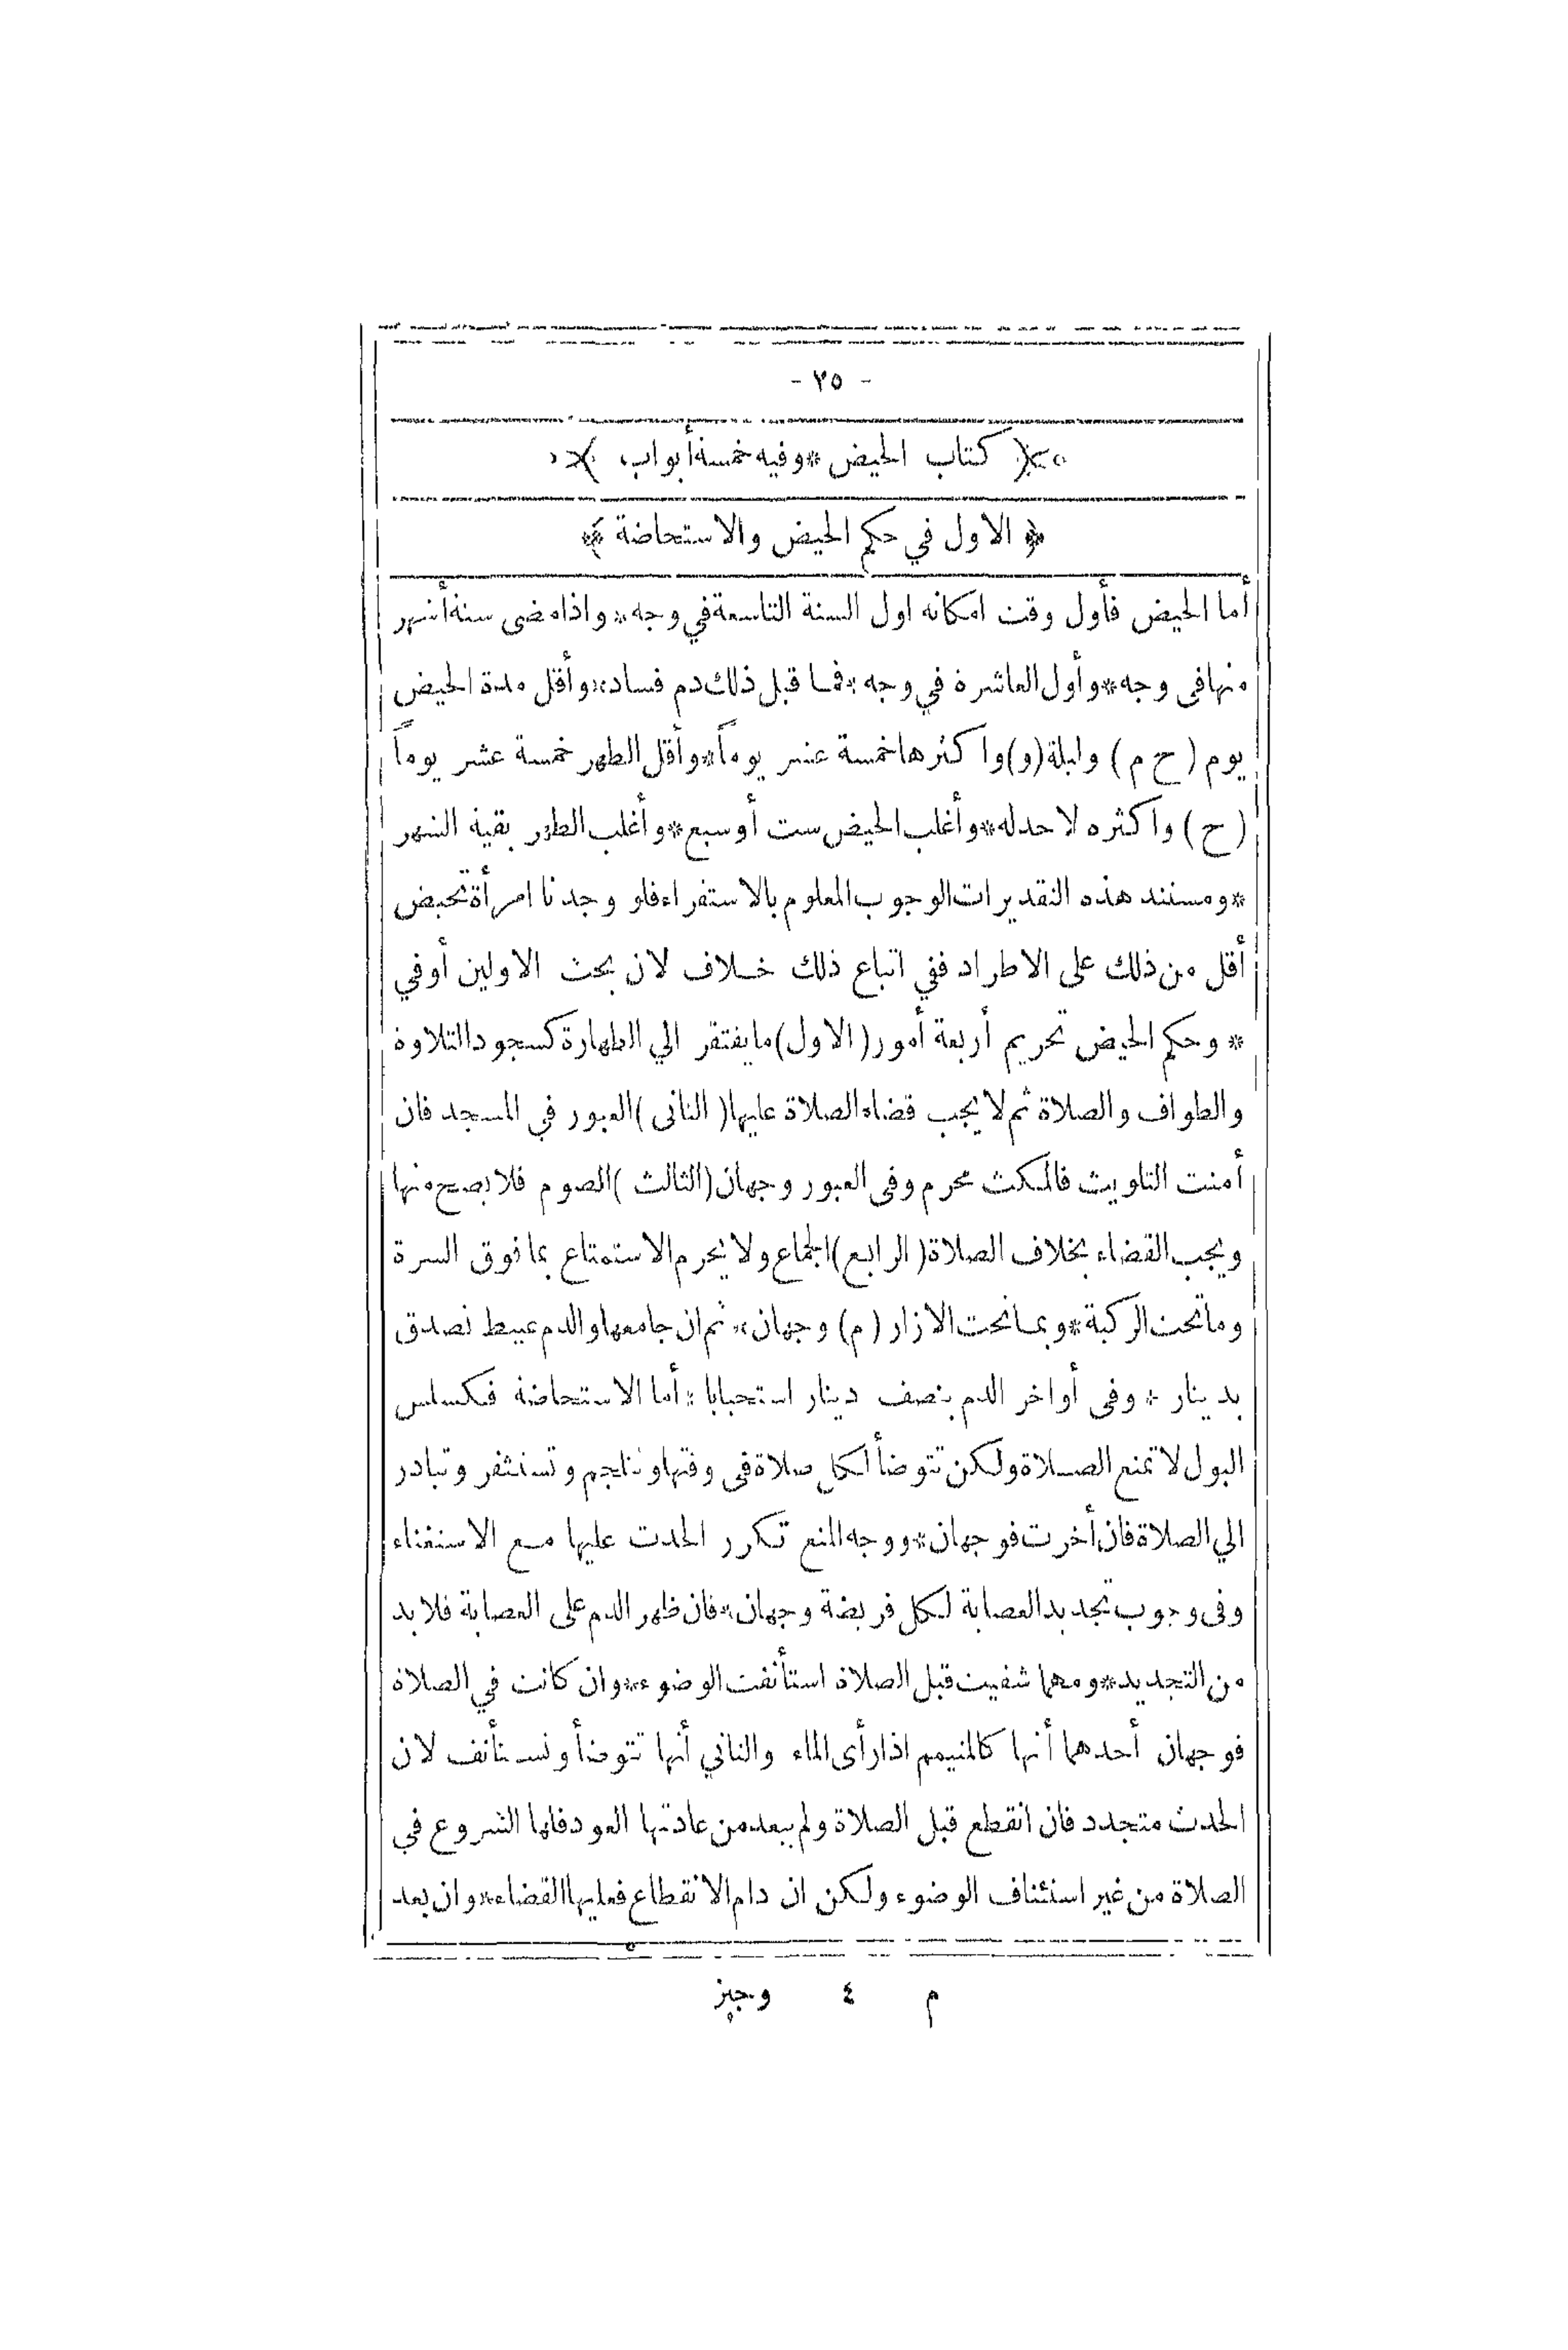 - ٢٥ -
﴿ كتاب الحيض * وفيه خمسة أبواب ﴾
﴿ الاول في حكم الحيض والاستحاضة ﴾
أما الحيض فأول وقت امكانه اول السنة التاسعة في وجه * واذا مضى ستة أشهر
منها فى وجه * وأول العاشرة في وجه * فما قبل ذلك دم فساد * وأقل مدة الحيض
يوم ( ح م ) وليلة (و) واكثرها خمسة عشر يوماً * وأقل الطهر خمسة عشر يوماً
( ح ) واكثره لا حد له * وأغلب الحيض ست أو سبع * وأغلب الطهر بقية الشهر
* ومستند هذه التقديرات الوجوب المعلوم بالاستقراء فلو وجدنا امرأة تحيض
أقل من ذلك على الاطراد ففي اتباع ذلك خلاف لان بحث الاولين أوفي
* وحكم الحيض تحريم أربعة أمور ( الاول ) ما يفتقر الي الطهارة كسجود التلاوة
والطواف والصلاة ثم لا يجب قضاء الصلاة عليها ( الثانى ) العبور في المسجد فان
أمنت التلويث فالمكث محرم وفى العبور وجهان ( الثالث ) الصوم فلا يصح منها
ويجب القضاء بخلاف الصلاة ( الرابع ) الجماع ولا يحرم الاستمتاع بما فوق السرة
وما تحت الركبة * وبما تحت الازار ( م ) وجهان * ثم ان جامعها والدم عبيط تصدق
بدينار * وفى أواخر الدم بنصف دينار استحبابا * أما الاستحاضة فكسلس
البول لا تمنع الصلاة ولكن تتوضأ لكل صلاة فى وقتها وتتلجم وتستثفر وتبادر
الي الصلاة فان أخرت فوجهان * ووجه المنع تكرر الحدث عليها مع الاستغناء
وفى وجوب تجديد العصابة لكل فريضة وجهان * فان ظهر الدم على العصابة فلا بد
من التجديد * ومهما شفيت قبل الصلاة استأنفت الوضوء * وان كانت في الصلاة
فوجهان أحدهما أنها كالمتيمم اذا رأى الماء والثاني أنها تتوضأ وتستأنف لان
الحدث متجدد فان انقطع قبل الصلاة ولم يبعد من عادتها العود فلها الشروع في
الصلاة من غير استئناف الوضوء ولكن ان دام الانقطاع فعليها القضاء * وان بعد
م ٤ وجيز